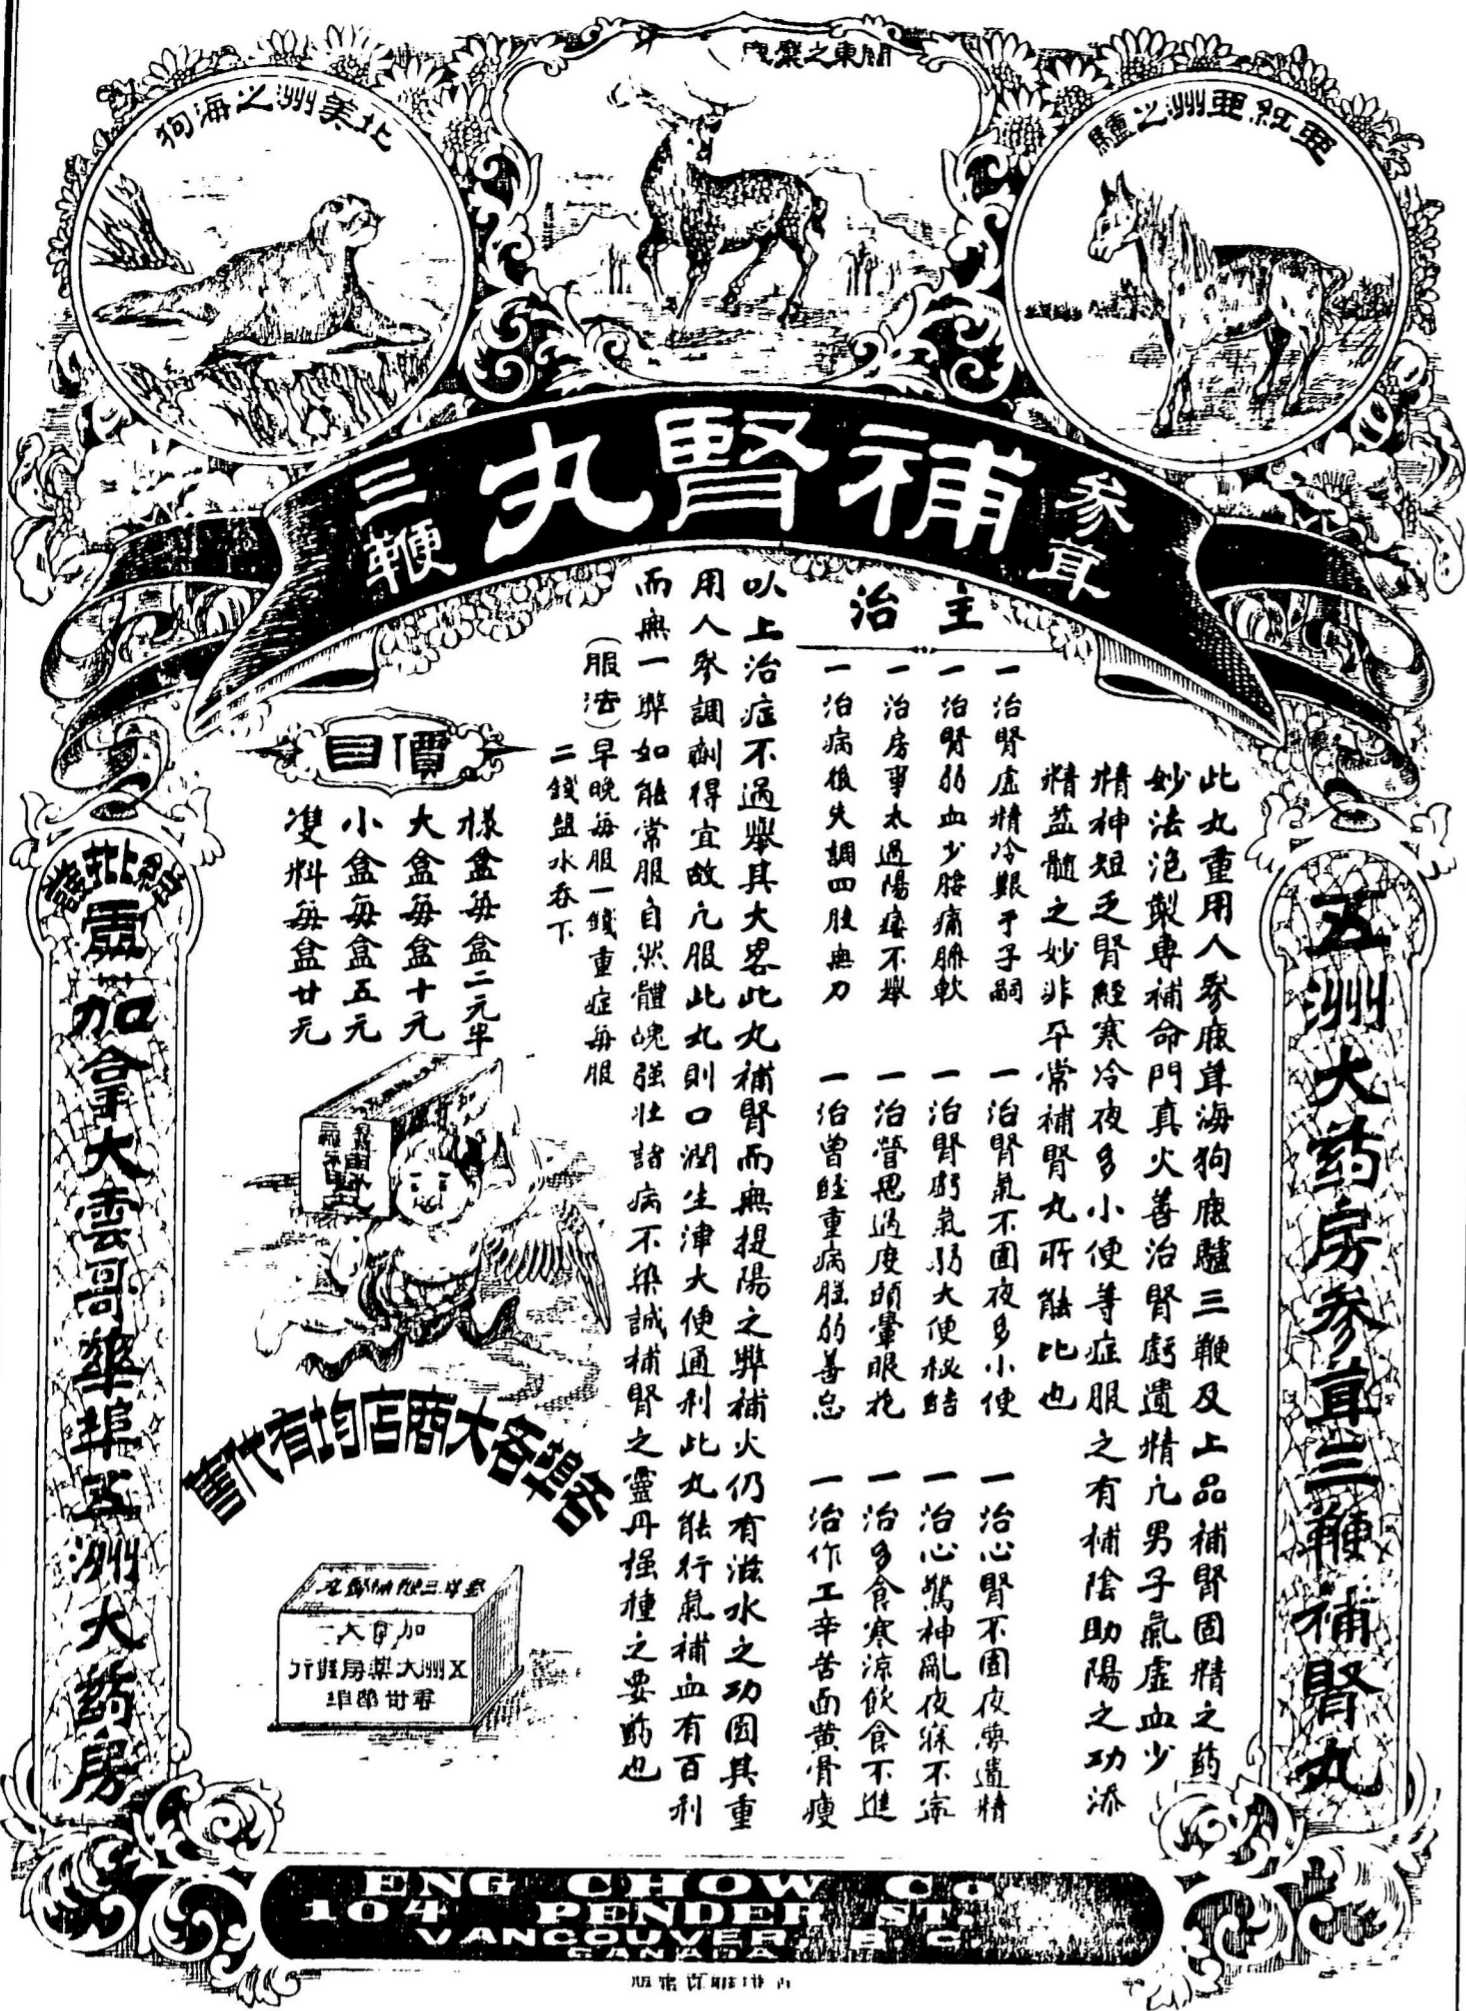 北美州之海狗
關東之麋鹿
亞紅亞州之驢
參茸
補腎丸
三鞭
五洲大药房參茸三鞭補腎丸
此丸重用人參鹿茸海狗鹿驢三鞭及上品補腎固精之药
妙法泡製專補命門真火善治腎虧遺精凢男子氣虛血少
精神短乏腎經寒冷夜多小便等症服之有補陰助陽之功添
精益髓之妙非平常補腎丸所能比也
主治
一治腎虛精冷艱于子嗣
一治腎氣不固夜多小便
一治心腎不固夜夢遺精
一治腎弱血少腰痛脚軟
一治腎虧氣弱大便秘結
一治心驚神亂夜寐不寧
一治房事太過陽痿不舉
一治營思過度頭暈眼花
一治多食寒涼飲食不進
一治病後失調四肢無力
一治曾經重病胆弱善忘
一治作工辛苦面黃骨瘦
以上治症不過舉其大畧此丸補腎而無提陽之弊補火仍有滋水之功因其重
用人參調劑得宜故凢服此丸則口潤生津大便通利此丸能行氣補血有百利
而無一弊如能常服自然體魄强壯諸病不染誠補腎之靈丹强種之要药也
(服法)早晚每服一錢重症每服
二錢盐水吞下
價目
樣盒每盒二元半
大盒每盒十元
小盒每盒五元
雙料每盒廿元
各埠各大商店均有代售
參茸三鞭補腎丸
加拿大
五洲大藥房發行
雲哥華埠
總批發處
加拿大雲哥華埠五洲大药房
ENG CHOW Co.
104 PENDER ST.
VANCOUVER, B.C.
CANADA